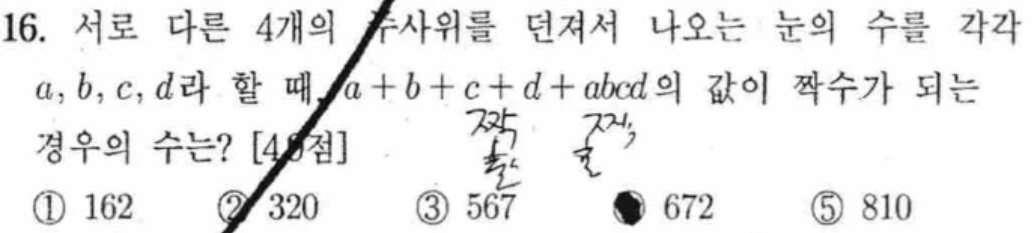 16. 서로 다른 4개의 주사위를 던져서 나오는 눈의 수를 각각
a, b, c, d라 할 때, a+b+c+d+abcd의 값이 짝수가 되는
경우의 수는? [4.0점]
짝 짝,
홀 홀
① 162 ② 320 ③ 567 672 ⑤ 810